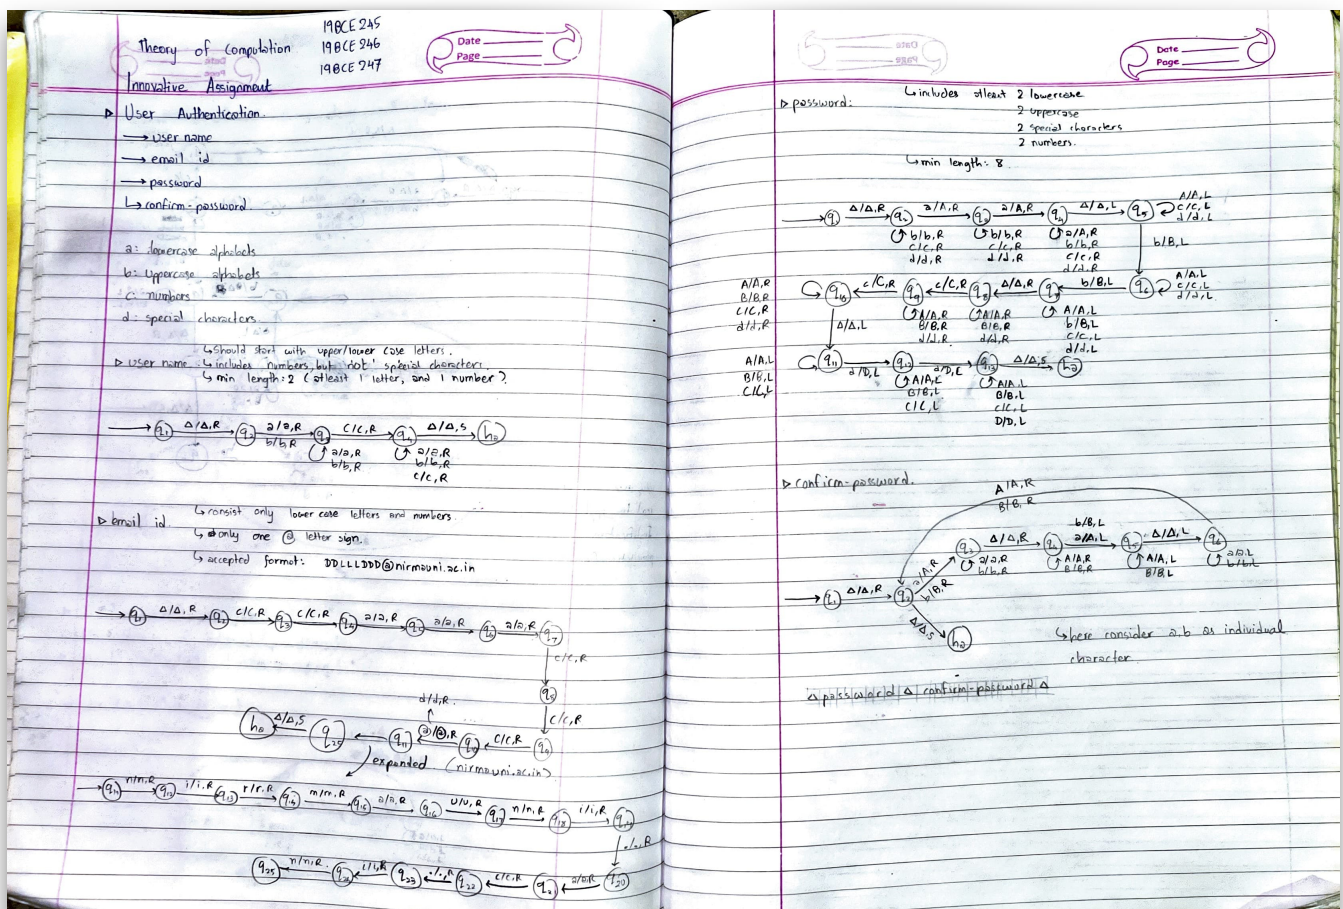 Theory of Computation
19BCE245
19BCE246
19BCE247
Date
Page
Innovative Assignment
▷ User Authentication.
→ user name
→ email id
→ password
↳ confirm-password.
a: lowercase alphabets
b: uppercase alphabets
c: numbers
d: special characters.
↳ should start with upper/lower case letters.
▷ User name: ↳ includes numbers, but 'not' special characters.
↳ min length: 2 (atleast 1 letter, and 1 number)
q1 Δ/Δ,R q2 a/a,R b/b,R q3 c/c,R q4 Δ/Δ,S ha
a/a,R a/a,R
b/b,R b/b,R
c/c,R
↳ consist only lower case letters and numbers.
▷ email id
↳ only one @ letter sign.
↳ accepted format: DDLLLDDD@nirmauni.ac.in
q1 Δ/Δ,R q2 c/c,R q3 c/c,R q4 a/a,R q5 a/a,R q6 a/a,R q7
c/c,R
q8
d/d,R.
c/c,R
ha Δ/Δ,S q25 q11 @/@,R q10 c/c,R q9
expanded (nirmauni.ac.in)
q11 n/n,R q12 i/i,R q13 r/r,R q14 m/m,R q15 a/a,R q16 u/u,R q17 n/n,R q18 i/i,R q19
./.,R
q25 n/n,R. q24 i/i,R q23 ./.,R q22 c/c,R q21 a/a,R q20
Date
Page
▷ password:
↳ includes atleast 2 lowercase
2 uppercase
2 special characters
2 numbers.
↳ min length: 8
q1 Δ/Δ,R q2 a/A,R q3 a/A,R q4 Δ/Δ,L q5
A/A,L
c/c,L
d/d,L
b/b,R b/b,R a/A,R
c/c,R c/c,R b/b,R
d/d,R d/d,R c/c,R
d/d,R
b/B,L
A/A,R
B/B,R
C/C,R
d/d,R
q10 c/C,R q9 c/C,R q8 Δ/Δ,R q7 b/B,L q6
A/A,L
c/c,L
d/d,L
A/A,R A/A,R A/A,L
B/B,R B/B,R b/B,L
d/d,R d/d,R c/c,L
d/d,L
Δ/Δ,L
A/A,L
B/B,L
C/C,L
q11 d/D,L q12 d/D,L q13 Δ/Δ,S ha
A/A,L A/A,L
B/B,L B/B,L
C/C,L C/C,L
D/D,L
▷ confirm-password.
A/A,R
B/B,R
q1 Δ/Δ,R q2 a/A,R b/B,R q3 Δ/Δ,R q4 b/B,L a/A,L q5 Δ/Δ,L q6
a/a,R A/A,R A/A,L a/a,L
b/b,R B/B,R B/B,L b/b,L
Δ/Δ,S
ha
↳ here consider a,b as individual
character.
Δ password Δ confirm-password Δ